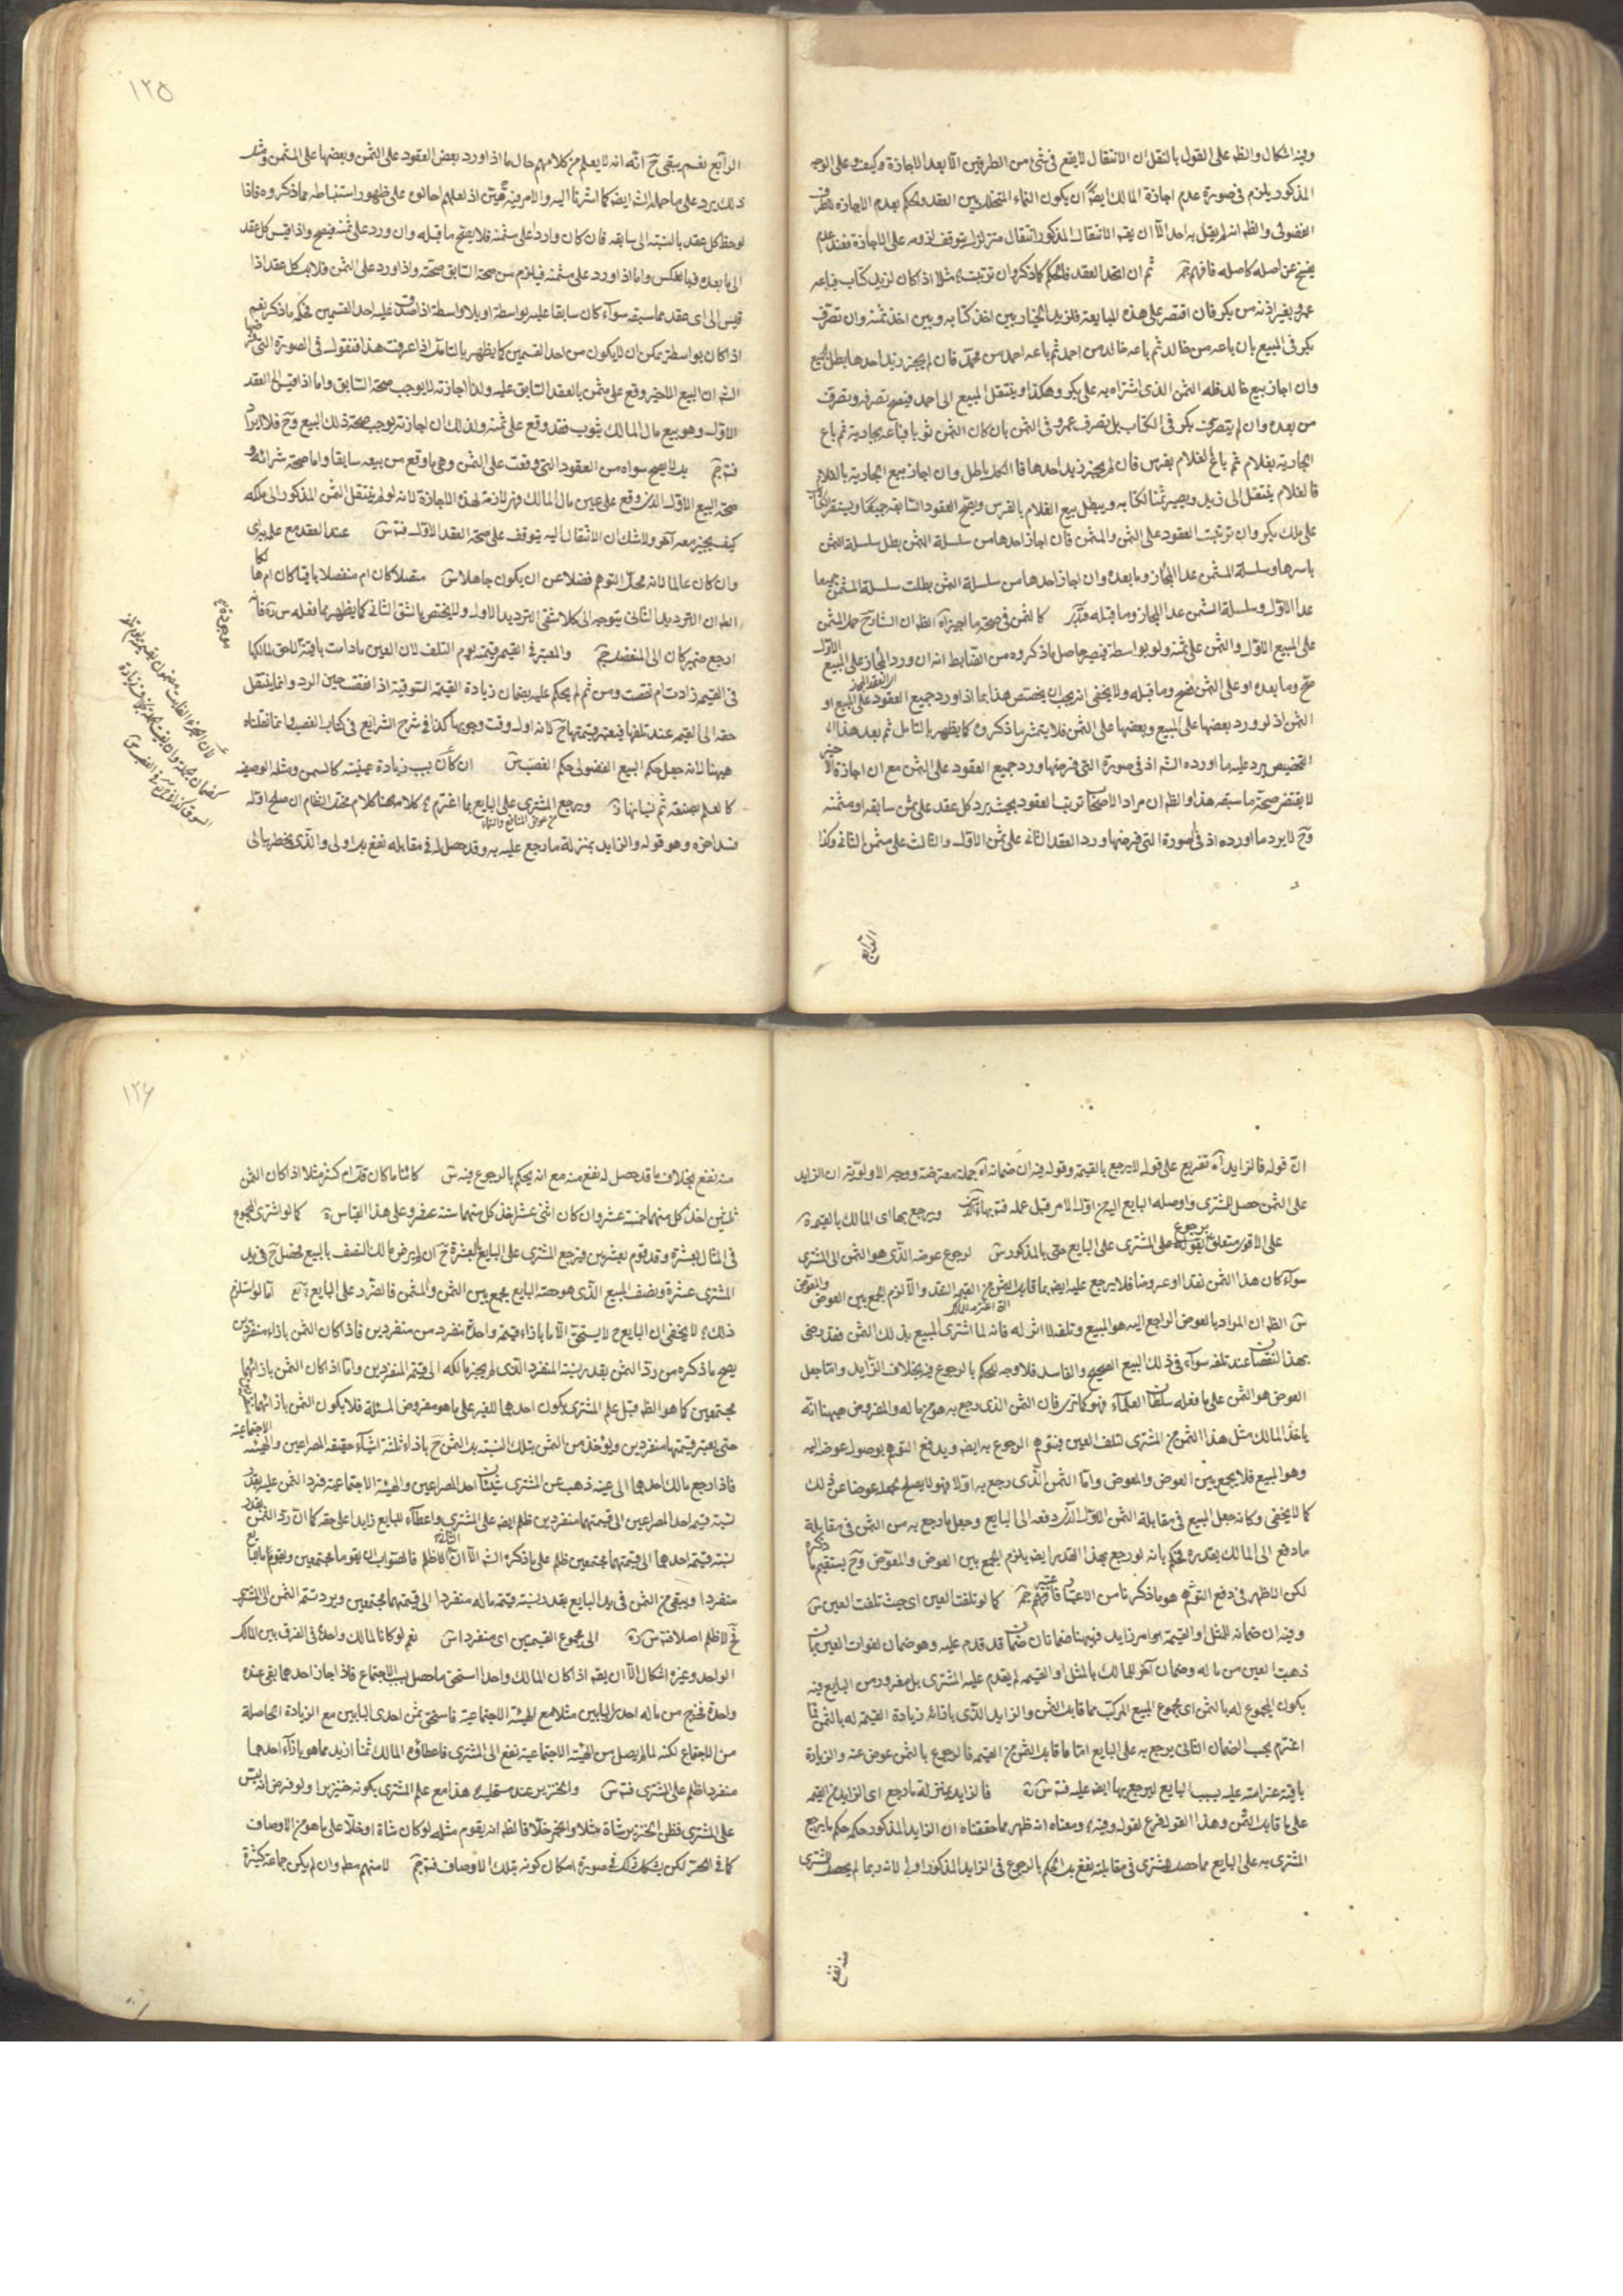 وفيه اشكال والظ على القول بالنقل ان الانتقال لا يقع فى شئ من الطرفين الا بعد الاجازة وكيف وعلى الوجه
المذكور يلزم فى صورة عدم اجازة المالك ايضا ان يكون النماء المتخلل بين العقد والحكم بعدم الاجازه للطرف
الفضولى والظ انه لم يقل به احد الا ان يقم الانتقال المذكور انتقال متزلزل يتوقف لزومه على الاجازة فعند عدم
يفسخ عن اصله كاصله فافهم ثم ان اتحد العقد فالحكم كما ذكر وان ترتبت مثلا اذا كان لزيد كتاب فباعه
عمرو بغير اذنه من بكر فان اقتصر على هذه المبايعة فلزيد الخيار بين اخذ كتابه وبين اخذ ثمنه وان تصرف
بكر فى المبيع بان باعه من خالد ثم باعه خالد من احمد ثم باعه احمد من محمد فان لم يجز زيد احدها بطل الجميع
وان اجاز بيع خالد فله الثمن الذى اشتراه به على بكر وهكذا وينتقل المبيع الى احمد فيصح تصرفه وتصرف
من بعده وان لم يتصرف بكر فى الكتاب بل تصرف عمرو فى الثمن بان كان الثمن ثوبا فباعه بجارية ثم باع
الجارية بغلام ثم باع الغلام بفرس فان لم يجز زيد احدها فالكل باطل وان اجاز بيع الجارية بالغلام
فالغلام ينتقل الى زيد ويصير ثمنا لكتابه ويبطل بيع الغلام بالفرس ويصح العقود السابقه جميعها ويستقر الكتاب
على ملك بكر وان ترتبت العقود على الثمن والمثمن فان اجاز احدها من سلسلة الثمن بطل سلسلة الثمن
باسرها وسلسلة المثمن عدا المجاز وما بعده وان اجاز احدها من سلسلة الثمن بطلت سلسلة المثمن جميعا
عدا الاول وسلسلة الثمن عدا المجاز وما قبله فتدبر كالثمن فى صحة ما اجيز آه الظ ان الشارح حمل المثمن
على المبيع الاول والثمن على ثمنه ولو بواسطة فيصير حاصل ما ذكروه من الضابط انه ان ورد المجاز على المبيع الاول
صح وما بعده او على الثمن فصح وما قبله ولا يخفى انه يجب ان يختص هذا بما اذا ورد جميع العقود على المبيع او
الثمن اذ لو ورد بعضها على المبيع وبعضها على الثمن فلا يتمشى ما ذكروه كما يظهر بالتامل ثم بعد هذا
التخصيص يرد عليه ما اورده الشه اذ فى صورة التى فرضها ورد جميع العقود على الثمن مع ان اجازة الاخير
لا يقتضى صحة ما سبقه هذا والظ ان مراد الاصحاب ترتب العقود بحيث يرد كل عقد على ثمن سابقه او مثمنه
وح لا يرد ما اورده اذ فى صورة التى فرضها ورد العقد الثانى على ثمن الاول والثالث على مثمن الثانى وكذا
الرابع
١٢٥
الرابع نعم يبقى ح انه انه لا يعلم من كلامهم حال ما اذا ورد بعض العقود على الثمن وبعضها على المثمن ومثل
ذلك يرد على ما حمله الشه ايضا كما اشرنا اليه والامر فيه هين اذ لعلهم احالوه على ظهور استنباطه مما ذكروه فاذا
لوحظ كل عقد بالنسبة الى سابقه فان كان واردا على مثمنه فلا يصح ما قبله وان ورد على ثمنه فيصح واذا قيس كل عقد
الى ما بعده فبالعكس واما اذا ورد على مثمنه فيلزم من صحة السابق صحته واذا ورد على الثمن فلا بل كل عقد اذا
قيس الى اى عقد مما سبقه سوآء كان سابقا عليه بواسطة او بلا واسطة اذا صدق عليه احد القسمين فحكمه ما ذكر نعم
اذا كان بواسطة يمكن ان لا يكون من احد القسمين كما يظهر بالتامل اذا عرفت هذا فنقول فى الصورة التى فرضها
الشه ان البيع الاخير وقع على مثمن بالعقد السابق عليه ولذا اجازته لا يوجب صحة السابق واما اذا قيس الى العقد
الاول وهو بيع مال المالك بثوب فقد وقع على ثمنه ولذلك ان اجازته يوجب صحة ذلك البيع وح فلا ايراد
فتدبر بل لا يصح سواه من العقود التى وقعت على الثمن وهى ما وقع من بيعه سابقا واما صحة شرائه و
صحة البيع الاول الذى وقع على عين مال المالك فهى لازمة لهذه الاجازة لانه لو لم ينتقل الثمن المذكور الى ملكه
كيف يجيز معه آخر ولا شك ان الانتقال اليه يتوقف على صحة العقد الاول فتدبر عند العقد مع على براى
وان كان عالما لانه محل التوهم فضلا عن ان يكون جاهلا متصلا كان ام منفصلا باقيا كان ام هالكا
الظ ان الترديد الثانى يتوجه الى كلا شقى الترديد الاول ولا يختص بالشق الثانى كما يظهر مما فعله س ره فانه
ارجع ضمير كان الى المنفصل والمعتبر فى القيمه قيمته يوم التلف لان العين ما دامت باقية لاحق لمالكها
فى القيمه زادت ام نقصت ومن ثم لم يحكم عليه بضمان زيادة القيمة السوقيه اذا نقصت حين الرد وانما ينتقل
حقه الى القيمه عند تلفها فيعتبر قيمتها ح لانه اول وقت وجوبها كذا فى شرح الشرايع فى كتاب الغصب وانما نقلناه
هيهنا لانه جعل حكم البيع الفضولى حكم الغصب ان كان بسبب زيادة عينيه كالسمن ومثله الوصفيه
كالعلم بصنعة ثم نسيانها ويرجع المشترى على البايع بما اغترم كلامه هنا كلام مختل النظام ان صلح اوله
من عوض المنافع والنماء
فسد اخره وهو قوله والزايد بمنزلة ما رجع عليه به وقد حصل له فى مقابله نفع بل اولى والذى يخطر ببالى
١٢٦
ان قوله فالزايد آه تفريع على قوله لا يرجع بالقيمة وقوله وفيه ان ضمانه آه جملة معترضة ووجه الاولوية ان الزايد
على الثمن حصل للمشترى واوصله البايع اليه من اول الامر قبل عمله ويرجع بها اى المالك بالقيمة
على الاقوى متعلق بقوله يرجع على المشترى على البايع حتى بالمذكور لرجوع عوضه الذى هو الثمن الى المشترى
سوآء كان هذا الثمن نقدا او عروضا فلا يرجع عليه ايضا بما قابل الثمن من القيمة النقد والا لزم الجمع بين العوض والمعوض
الظ ان المراد بالعوض الراجع اليه هو المبيع وتلفه لا اثر له فانه لما اشترى المبيع بذلك الثمن فقد رضى
بهذا النقصان عند تلفه سوآء فى ذلك البيع الصحيح والفاسد فلا وجه للحكم بالرجوع فيه بخلاف الزايد واما جعل
العوض هو الثمن على ما فعله سلطان العلمآء فهو كما ترى فان الثمن الذى رجع به هو من ماله والمفروض هيهنا انه
ياخذ المالك مثل هذا الثمن من المشترى لتلف العين فيتوهم الرجوع به ايضا ويدفع التوهم بوصول عوضه اليه
وهو المبيع فلا يجمع بين العوض والمعوض واما الثمن الذى رجع به اولا فهو لا يصلح لجعله عوضا عن ذلك
كما لا يخفى وكانه جعل المبيع فى مقابلة الثمن الاول الذى دفعه الى البايع وجعل ما رجع به من الثمن فى مقابلة
ما دفع الى المالك بقدره فحكم بانه لو رجع بهذا القدر ايضا يلزم الجمع بين العوض والمعوض وح يستقيم ما ذكره
لكن الاظهر فى دفع التوهم هو ما ذكرنا من الاعتبار فافهم كما لو تلفت العين اى حيث تلفت العين
وفيه ان ضمانه للمثل او القيمة هو امر زايد فيهنا ضمانان ضمان قد قدم عليه وهو ضمان لفوات العين بما
ذهبت العين من ماله وضمان آخر للمالك بالمثل او القيمه لم يقدم عليه المشترى بل مغرور من البايع فيه
بكون المجموع له بالثمن اى مجموع المبيع المركب مما قابل الثمن والزايد الذى بازائه زيادة القيمة له بالثمن فما
اغترم بحسب الضمان الثانى يرجع به على البايع اما ما قابل الثمن من القيمه فالرجوع بالثمن عوض عنه والزيادة
باقية غرامته عليه بسبب البايع ليرجع بها ايضا عليه فالزايد بمنزلة ما رجع اى الزايد من القيمه
على ما قابل الثمن وهذا القول فرع لقوله وفيه ومعناه انه ظهر مما حققناه ان الزايد المذكور حكمه حكم ما يرجع
المشترى به على البايع مما حصل للمشترى فى مقابلته نفع بل الحكم بالرجوع فى الزايد المذكور اولى لانه ربما لم يحصل للمشترى
منه نفع
منه نفع بخلاف ما قد حصل له نفع منه مع انه يحكم بالرجوع فيه كائنا ما كان قل ام كثر مثلا اذا كان الثمن
ثلثين اخذ كل منهما خمسة عشر وان كان اثنى عشر اخذ كل منهما ستة عشر وعلى هذا القياس كما لو اشترى المجموع
فى المثال بعشرة وقد قوم بعشرين فيرجع المشترى على البايع بالعشرة ح ان لم يرض مالك النصف بالبيع يحصل ح فى يد
المشترى عشرة ونصف المبيع الذى هو حصة البايع يجمع بين الثمن والمثمن فالضرر على البايع اما لو استلزم
ذلك لا يخفى ان البايع ح لا يستحق الا ما بازاء قيمة واحدة منفرد من منفردين فاذا كان الثمن بازاء منفردين
يصح ما ذكره من رد الثمن بقدر نسبة المنفرد الذى لم يجز مالكه الى قيمة المنفردين واما اذا كان الثمن بازائهما
مجتمعين كما هو الظ قبل علم المشترى بكون احدهما للغير على ما هو مفروض المسئلة فلا يكون الثمن بازائهما
حتى يعتبر قيمتهما منفردين ويؤخذ من الثمن بتلك النسبة بل الثمن ح بازاء ثلثة اشيآء حقيقة المصراعين والهيئه الاجتماعيه
فاذا رجع مالك احدهما الى عينه ذهب عن المشترى شيئان احد المصراعين والهيئة الاجتماعية فرد الثمن عليه بقدر
نسبة قيمة احد المصراعين الى قيمتهما منفردين ظلم ايضا على المشترى واعطآء للبايع زايدا على حقه كما ان رد الثمن بقدر
نسبة قيمة احدهما الى قيمتهما مجتمعين ظلم على ما ذكره الشه الا ان الثانى اظلم فالصواب ان يقوما مجتمعين ويقوم ما للبايع
منفردا ويبقى من الثمن فى يد البايع بقدر نسبة قيمة ماله منفردا الى قيمتهما مجتمعين ويرد تتمة الثمن الى المشترى
فح لا ظلم اصلا الى مجموع القيمتين اى منفردا نعم لو كانا لمالك واحد فى الفرق بين المالك
الواحد وغيره اشكال الا ان يقم اذا كان المالك واحدا استحق ما حصل بسبب الاجتماع فاذا اجاز احدهما بقى عنده
واحدة فيخرج من ماله احد البابين مثلا مع الهيئة الاجتماعية فاستحق ثمن احدى البابين مع الزيادة الحاصلة
من الاجتماع لكنه لما لم يصل من الهيئة الاجتماعية نفع الى المشترى فاعطاؤه المالك ثمنا ازيد مما هو بازآء احدهما
منفردا ظلم على المشترى والخنزير عند مستحليه هذا مع علم المشترى بكونه خنزيرا ولو فرض انه
على المشترى فظن الخنزير شاة مثلا والخمر خلا فالظ انه يقوم مثله لو كان شاة او خلا على ما هو من الاوصاف
كما فى الحر لكن يشكل ذلك فى صورة امكان كونه بتلك الاوصاف لا منهم مطم وان لم يكن جماعة كثيرة